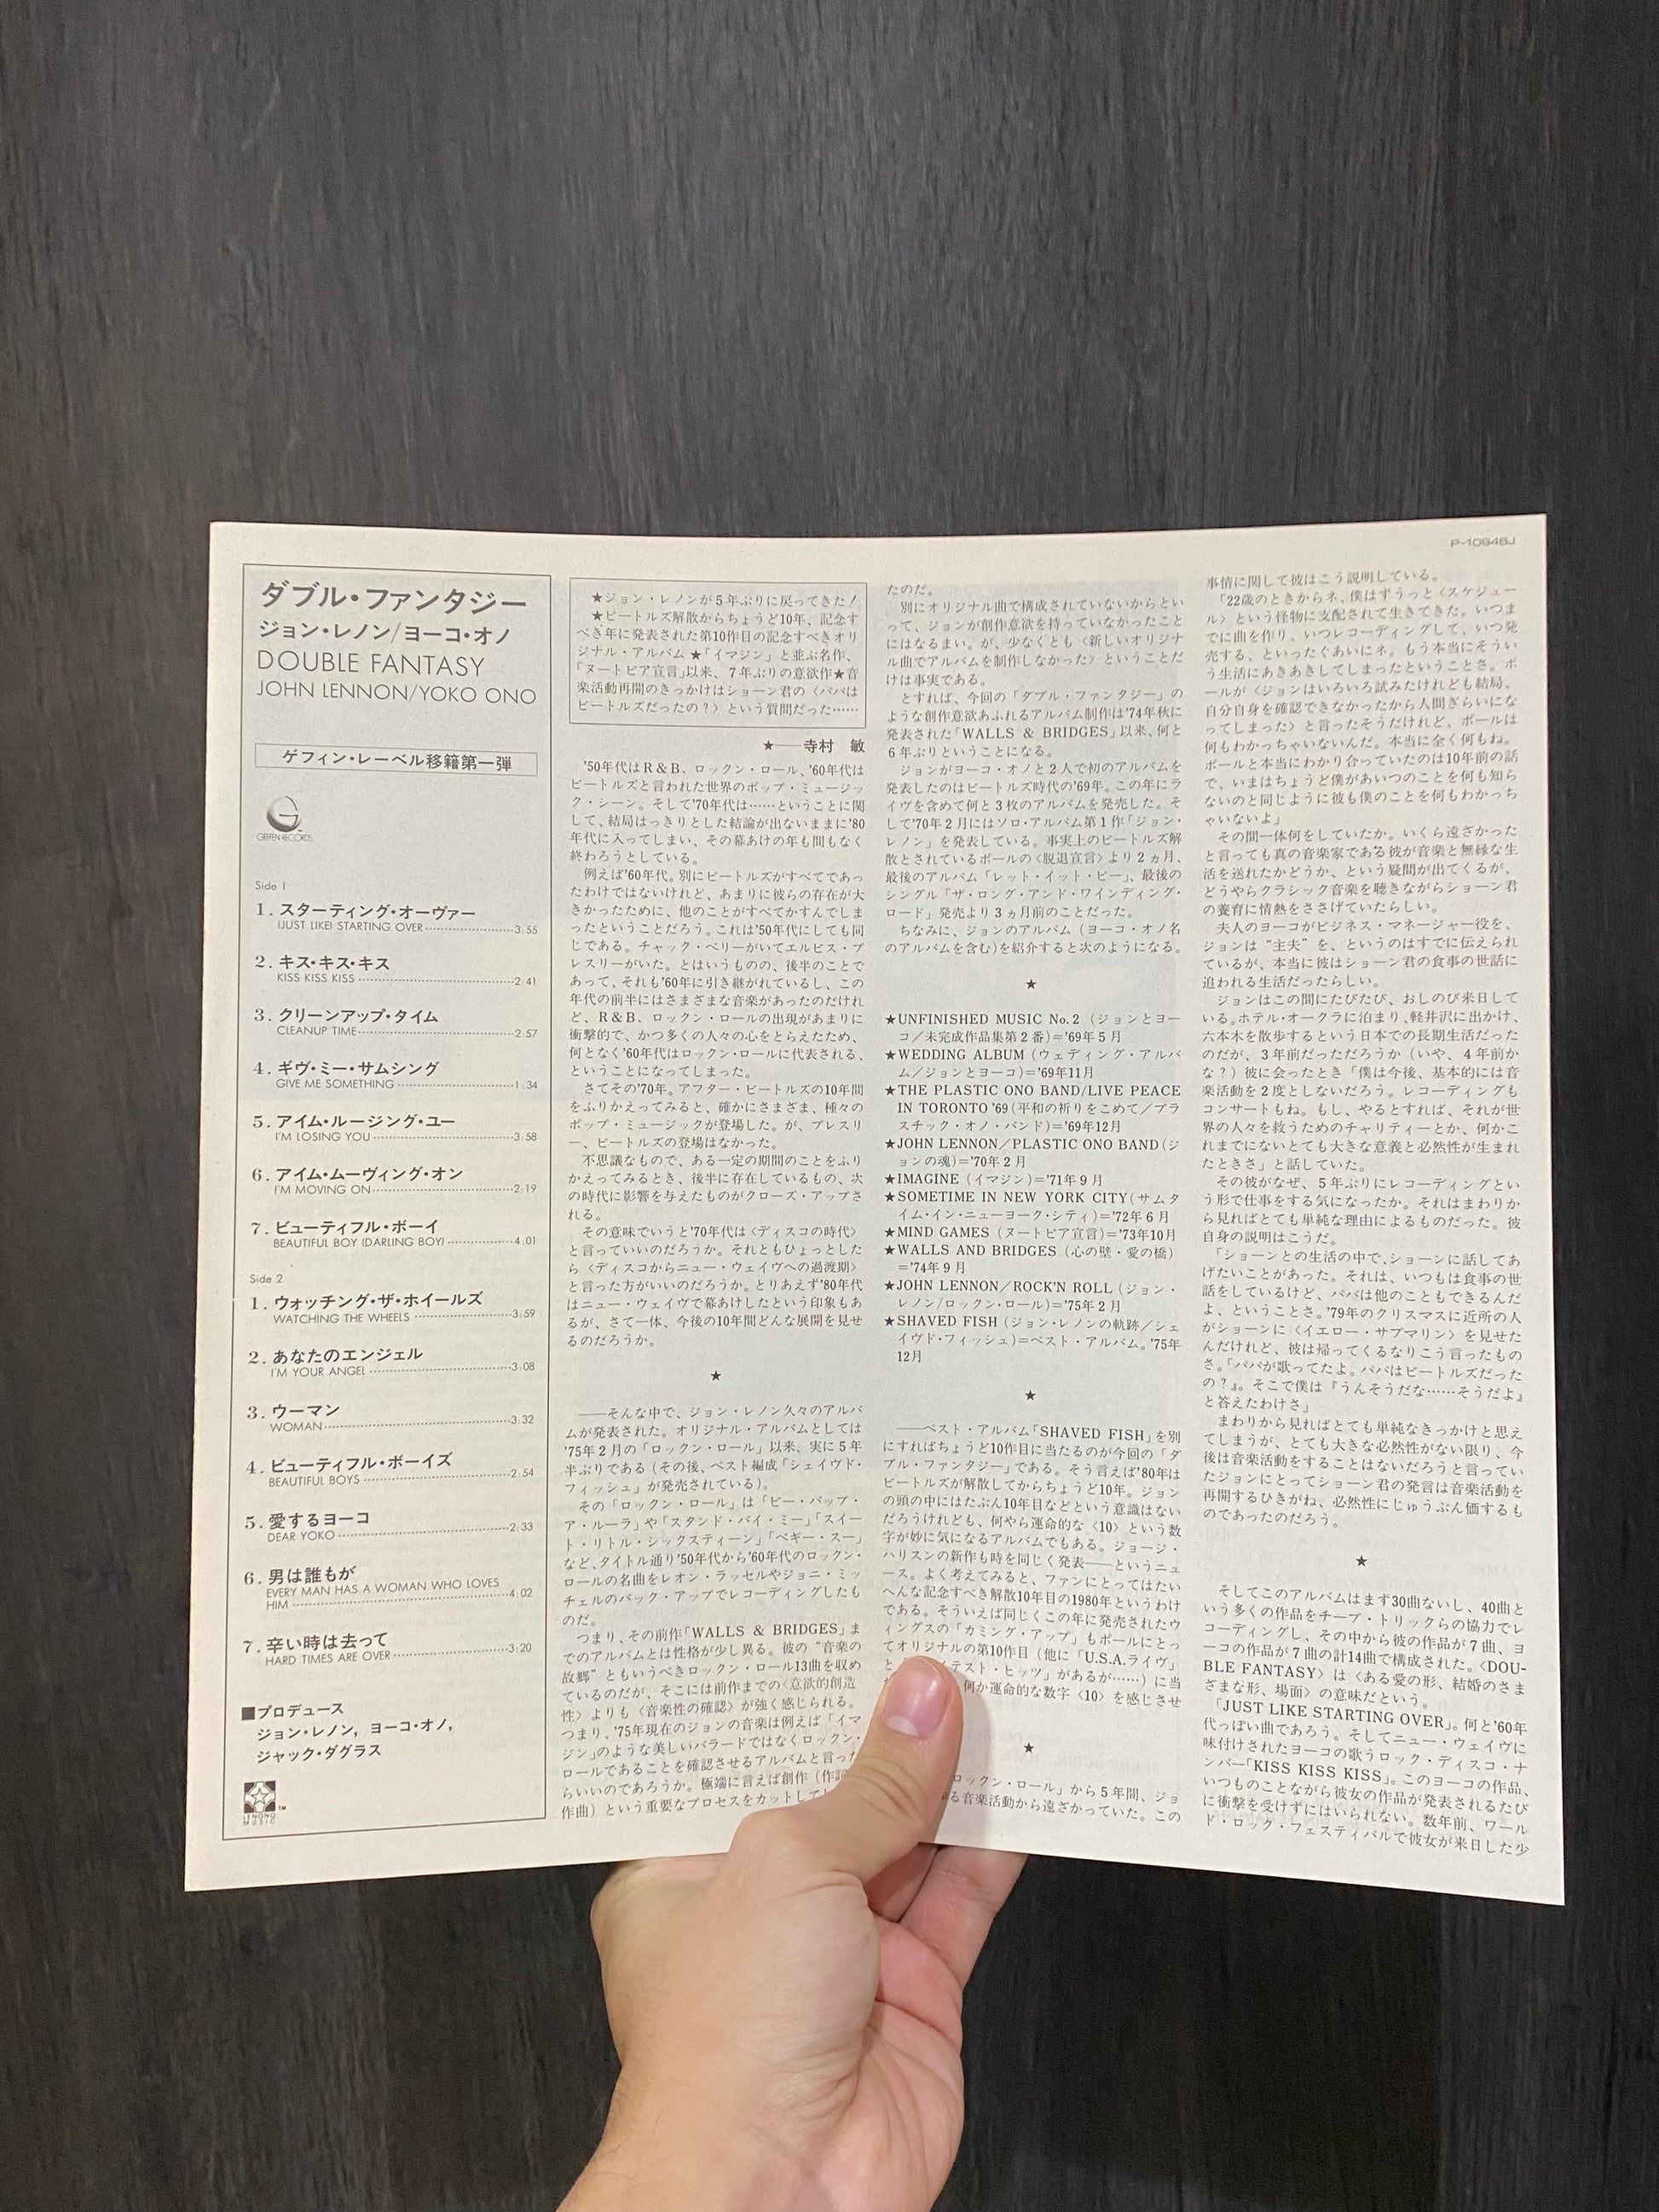 P-10948J
ダブル・ファンタジー
ジョン・レノン/ヨーコ・オノ
DOUBLE FANTASY
JOHN LENNON/YOKO ONO
ゲフィン・レーベル移籍第一弾
GEFFEN RECORDS
Side 1
1. スターティング・オーヴァー
(JUST LIKE) STARTING OVER 3:55
2. キス・キス・キス
KISS KISS KISS 2:41
3. クリーンアップ・タイム
CLEANUP TIME 2:57
4. ギヴ・ミー・サムシング
GIVE ME SOMETHING 1:34
5. アイム・ルージング・ユー
I'M LOSING YOU 3:58
6. アイム・ムーヴィング・オン
I'M MOVING ON 2:19
7. ビューティフル・ボーイ
BEAUTIFUL BOY (DARLING BOY) 4:01
Side 2
1. ウォッチング・ザ・ホイールズ
WATCHING THE WHEELS 3:59
2. あなたのエンジェル
I'M YOUR ANGEL 3:08
3. ウーマン
WOMAN 3:32
4. ビューティフル・ボーイズ
BEAUTIFUL BOYS 2:54
5. 愛するヨーコ
DEAR YOKO 2:33
6. 男は誰もが
EVERY MAN HAS A WOMAN WHO LOVES
HIM 4:02
7. 辛い時は去って
HARD TIMES ARE OVER 3:20
■プロデュース
ジョン・レノン, ヨーコ・オノ,
ジャック・ダグラス
LENONO
MUSIC
TM
★ジョン・レノンが5年ぶりに戻ってきた!
★ビートルズ解散からちょうど10年、記念す
べき年に発表された第10作目の記念すべきオリ
ジナル・アルバム★「イマジン」と並ぶ名作、
「ヌートピア宣言」以来、7年ぶりの意欲作★音
楽活動再開のきっかけはショーン君の〈パパは
ビートルズだったの?〉という質問だった……
★──寺村 敏
'50年代はR&B、ロックン・ロール、'60年代は
ビートルズと言われた世界のポップ・ミュージッ
ク・シーン。そして'70年代は……ということに関
して、結局はっきりとした結論が出ないままに'80
年代に入ってしまい、その幕あけの年も間もなく
終わろうとしている。
例えば'60年代。別にビートルズがすべてであっ
たわけではないけれど、あまりに彼らの存在が大
きかったために、他のことがすべてかすんでしま
ったということだろう。これは'50年代にしても同
じである。チャック・ベリーがいてエルビス・プ
レスリーがいた。とはいうものの、後半のことで
あって、それも'60年に引き継がれているし、この
年代の前半にはさまざまな音楽があったのだけれ
ど、R&B、ロックン・ロールの出現があまりに
衝撃的で、かつ多くの人々の心をとらえたため、
何となく'60年代はロックン・ロールに代表される、
ということになってしまった。
さてその'70年。アフター・ビートルズの10年間
をふりかえってみると、確かにさまざま、種々の
ポップ・ミュージックが登場した。が、プレスリ
ー、ビートルズの登場はなかった。
不思議なもので、ある一定の期間のことをふり
かえってみるとき、後半に存在しているもの、次
の時代に影響を与えたものがクローズ・アップさ
れる。
その意味でいうと'70年代は〈ディスコの時代〉
と言っていいのだろうか。それともひょっとした
ら〈ディスコからニュー・ウェイヴへの過渡期〉
と言った方がいいのだろうか。とりあえず'80年代
はニュー・ウェイヴで幕あけしたという印象もあ
るが、さて一体、今後の10年間どんな展開を見せ
るのだろうか。
★
──そんな中で、ジョン・レノン久々のアルバ
ムが発表された。オリジナル・アルバムとしては
'75年2月の「ロックン・ロール」以来、実に5年
半ぶりである(その後、ベスト編成「シェイヴド・
フィッシュ」が発売されている)。
その「ロックン・ロール」は「ビー・バップ・
ア・ルーラ」や「スタンド・バイ・ミー」「スイー
ト・リトル・シックスティーン」「ペギー・スー」
など、タイトル通り'50年代から'60年代のロックン・
ロールの名曲をレオン・ラッセルやジョニ・ミッ
チェルのバック・アップでレコーディングしたも
のだ。
つまり、その前作「WALLS & BRIDGES」ま
でのアルバムとは性格が少し異る。彼の“音楽の
故郷”ともいうべきロックン・ロール13曲を収め
ているのだが、そこには前作までの〈意欲的創造
性〉よりも〈音楽性の確認〉が強く感じられる。
つまり、'75年現在のジョンの音楽は例えば「イマ
ジン」のような美しいバラードではなくロックン・
ロールであることを確認させるアルバムと言った
らいいのであろうか。極端に言えば創作(作詞
作曲)という重要なプロセスをカットして
たのだ。
別にオリジナル曲で構成されていないからとい
って、ジョンが創作意欲を持っていなかったこと
にはなるまい。が、少なくとも〈新しいオリジナ
ル曲でアルバムを制作しなかった〉ということだ
けは事実である。
とすれば、今回の「ダブル・ファンタジー」の
ような創作意欲あふれるアルバム制作は'74年秋に
発表された「WALLS & BRIDGES」以来、何と
6年ぶりということになる。
ジョンがヨーコ・オノと2人で初のアルバムを
発表したのはビートルズ時代の'69年。この年にラ
イヴを含めて何と3枚のアルバムを発売した。そ
して'70年2月にはソロ・アルバム第1作「ジョン・
レノン」を発表している。事実上のビートルズ解
散とされているポールの〈脱退宣言〉より2ヵ月、
最後のアルバム「レット・イット・ビー」、最後の
シングル「ザ・ロング・アンド・ワインディング・
ロード」発売より3ヵ月前のことだった。
ちなみに、ジョンのアルバム(ヨーコ・オノ名
のアルバムを含む)を紹介すると次のようになる。
★
★UNFINISHED MUSIC No.2 (ジョンとヨー
コ/未完成作品集第2番)='69年5月
★WEDDING ALBUM (ウェディング・アルバ
ム/ジョンとヨーコ)='69年11月
★THE PLASTIC ONO BAND/LIVE PEACE
IN TORONTO '69(平和の祈りをこめて/プラ
スチック・オノ・バンド)='69年12月
★JOHN LENNON/PLASTIC ONO BAND(ジ
ョンの魂)='70年2月
★IMAGINE (イマジン)='71年9月
★SOMETIME IN NEW YORK CITY(サムタ
イム・イン・ニューヨーク・シティ)='72年6月
★MIND GAMES (ヌートピア宣言)='73年10月
★WALLS AND BRIDGES (心の壁・愛の橋)
='74年9月
★JOHN LENNON/ROCK'N ROLL (ジョン・
レノン/ロックン・ロール)='75年2月
★SHAVED FISH (ジョン・レノンの軌跡/シェ
イヴド・フィッシュ)=ベスト・アルバム。'75年
12月
★
──ベスト・アルバム「SHAVED FISH」を別
にすればちょうど10作目に当たるのが今回の「ダ
ブル・ファンタジー」である。そう言えば'80年は
ビートルズが解散してからちょうど10年。ジョン
の頭の中にはたぶん10年目などという意識はない
だろうけれども、何やら運命的な〈10〉という数
字が妙に気になるアルバムでもある。ジョージ・
ハリスンの新作も時を同じく発表──というニュ
ース。よく考えてみると、ファンにとってはたい
へんな記念すべき解散10年目の1980年というわけ
である。そういえば同じくこの年に発売されたウ
ィングスの「カミング・アップ」もポールにとっ
てオリジナルの第10作目(他に「U.S.A.ライヴ」
と テスト・ヒッツ」があるが……)に当
何か運命的な数字〈10〉を感じさせ
★
ロックン・ロール」から5年間、ジョ
る音楽活動から遠ざかっていた。この
事情に関して彼はこう説明している。
「22歳のときからネ、僕はずうっと〈スケジュー
ル〉という怪物に支配されて生きてきた。いつま
でに曲を作り、いつレコーディングして、いつ発
売する、といったぐあいにネ。もう本当にそうい
う生活にあきあきしてしまったということさ。ポ
ールが〈ジョンはいろいろ試みたけれども結局、
自分自身を確認できなかったから人間ぎらいにな
ってしまった〉と言ったそうだけれど、ポールは
何もわかっちゃいないんだ。本当に全く何もね。
ポールと本当にわかり合っていたのは10年前の話
で、いまはちょうど僕があいつのことを何も知ら
ないのと同じように彼も僕のことを何もわかっち
ゃいないよ」
その間一体何をしていたか。いくら遠ざかった
と言っても真の音楽家である彼が音楽と無縁な生
活を送れたかどうか、という疑問が出てくるが、
どうやらクラシック音楽を聴きながらショーン君
の養育に情熱をささげていたらしい。
夫人のヨーコがビジネス・マネージャー役を、
ジョンは“主夫”を、というのはすでに伝えられ
ているが、本当に彼はショーン君の食事の世話に
追われる生活だったらしい。
ジョンはこの間にたびたび、おしのび来日して
いる。ホテル・オークラに泊まり、軽井沢に出かけ、
六本木を散歩するという日本での長期生活だった
のだが、3年前だっただろうか(いや、4年前か
な?)彼に会ったとき「僕は今後、基本的には音
楽活動を2度としないだろう。レコーディングも
コンサートもね。もし、やるとすれば、それが世
界の人々を救うためのチャリティーとか、何かこ
れまでにないとても大きな意義と必然性が生まれ
たときさ」と話していた。
その彼がなぜ、5年ぶりにレコーディングとい
う形で仕事をする気になったか。それはまわりか
ら見ればとても単純な理由によるものだった。彼
自身の説明はこうだ。
「ショーンとの生活の中で、ショーンに話してあ
げたいことがあった。それは、いつもは食事の世
話をしているけど、パパは他のこともできるんだ
よ、ということさ。'79年のクリスマスに近所の人
がショーンに〈イエロー・サブマリン〉を見せた
んだけれど、彼は帰ってくるなりこう言ったもの
さ。「パパが歌ってたよ。パパはビートルズだった
の?』。そこで僕は『うんそうだな……そうだよ』
と答えたわけさ」
まわりから見ればとても単純なきっかけと思え
てしまうが、とても大きな必然性がない限り、今
後は音楽活動をすることはないだろうと言ってい
たジョンにとってショーン君の発言は音楽活動を
再開するひきがね、必然性にじゅうぶん価するも
のであったのだろう。
★
そしてこのアルバムはまず30曲ないし、40曲と
いう多くの作品をチープ・トリックらの協力でレ
コーディングし、その中から彼の作品が7曲、ヨ
ーコの作品が7曲の計14曲で構成された。〈DOU-
BLE FANTASY〉は〈ある愛の形、結婚のさま
ざまな形、場面〉の意味だという。
「JUST LIKE STARTING OVER」。何と'60年
代っぽい曲であろう。そしてニュー・ウェイヴに
味付けされたヨーコの歌うロック・ディスコ・ナ
ンバー「KISS KISS KISS」。このヨーコの作品、
いつものことながら彼女の作品が発表されるたび
に衝撃を受けずにはいられない。数年前、ワール
ド・ロック・フェスティバルで彼女が来日した少